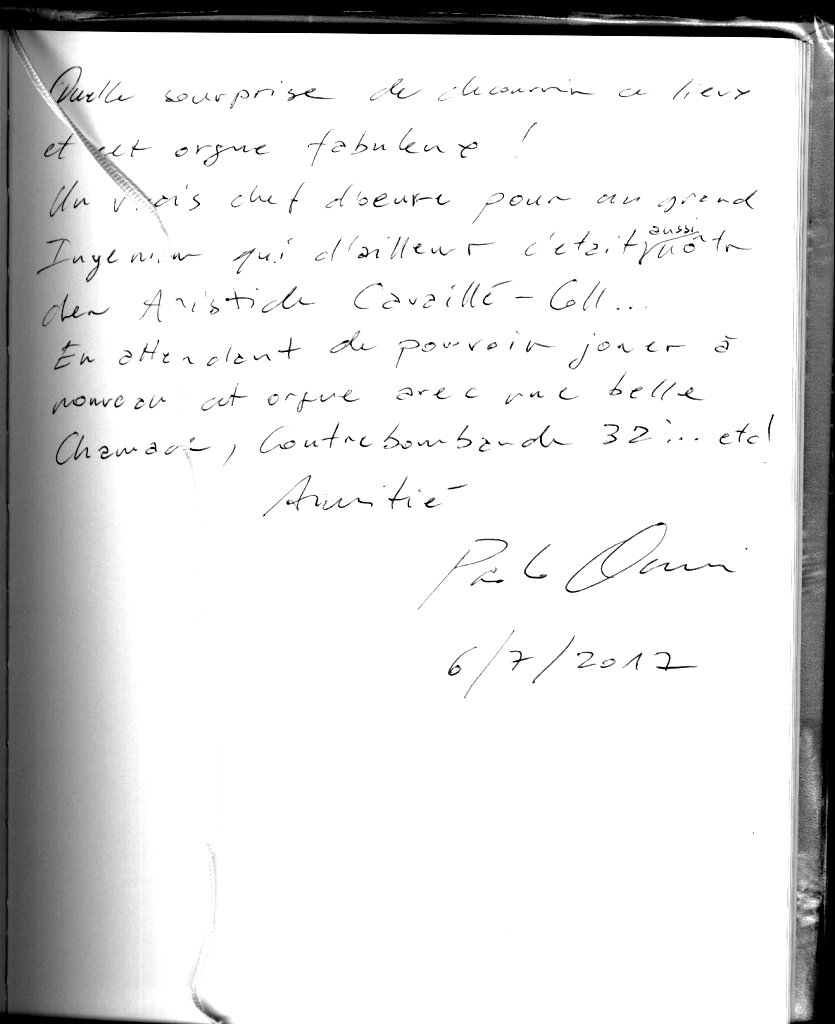 Quelle sourprise de decouvrir ce lieux
et cet orgue fabuleux !
Un vrais chef d'oeuvre pour un grand
Ingenieur qui d'ailleur c'etait aussi nôtr
cher Aristide Cavaillé-Coll...
En attendant de pouvoir jouer à
nouveau cet orgue avec une belle
Chamade, Contrebombarde 32'... etc!
Amitié
6/7/2017